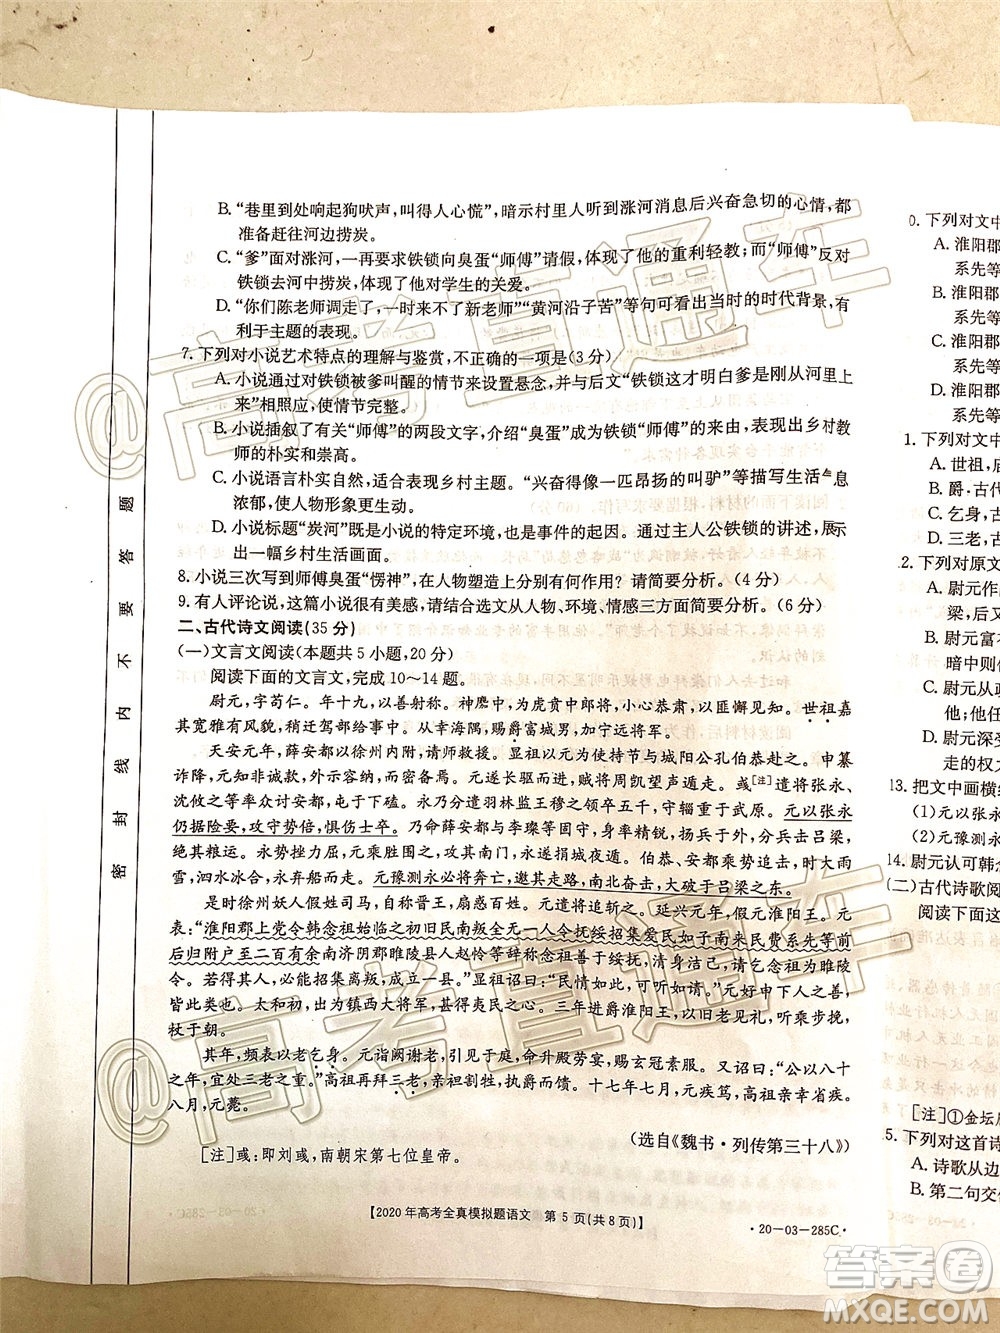 B. “巷里到处响起狗吠声，叫得人心慌”，暗示村里人听到涨河消息后兴奋急切的心情，都
准备赶往河边捞炭。
C. “爹”面对涨河，一再要求铁锁向臭蛋“师傅”请假，体现了他的重利轻教；而“师傅”让
铁锁去河中捞炭，体现了他对学生的关爱。
D. “你们陈老师调走了，一时来不了新老师”“黄河沿子苦”等句可看出当时的时代背景，有
利于主题的表现。
7. 下列对小说艺术特点的理解与鉴赏，不正确的一项是(3 分)
A. 小说通过对铁锁被爹叫醒的情节来设置悬念，并与后文“铁锁这才明白爹是刚从河里上
来”相照应，使情节完整。
B. 小说插叙了有关“师傅”的两段文字，介绍“臭蛋”成为铁锁“师傅”的原因，表现出乡村教
师的朴实和崇高。
C. 小说语言朴实自然，适合表现乡村主题。“兴奋得像一匹昂扬的叫驴”等描写生活气息
浓郁，使人物形象更生动。
D. 小说标题“炭河”既是小说的特定环境，也是事件的起因。通过主人公铁锁的讲述，展示
出一幅乡村生活画面。
8. 小说三次写到师傅臭蛋“愣神”，在人物塑造上分别有何作用？请简要分析。(4 分)
9. 有人评论说，这篇小说很有美感，请结合选文从人物、环境、情感三方面简要分析。(6 分)
二、古代诗文阅读(35 分)
(一)文言文阅读(本题共 5 小题，20 分)
阅读下面的文言文，完成10～14题。
尉元，字苟仁。年十九，以善射称。神䴥中，为虎贲中郎将，小心恭肃，以匪懈见知。世祖嘉
其宽雅有风貌，稍迁驾部给事中。从幸海隅，赐爵富城男，加宁远将军。
天安元年，薛安都以徐州内附，请师救援。显祖以元为使持节与城阳公孔伯恭赴之。中纂
诈降，元知非诚心，外示容纳，而密备焉。元遂长驱而进，贼将周凯望声遁走。彧[注]遣将张永、
沈攸之等率众讨安都，屯于下磕。永乃分遣羽林监王穆之领卒五千，守辎重于武原。元以张永
仍据险要，攻守势倍，惧伤士卒。乃命薛安都与李璨等固守，身率精锐，扬兵于外，分兵击吕梁，
绝其粮运。永势挫力屈，元乘胜围之，攻其南门，永遂捐城夜遁。伯恭、安都乘势追击，时大雨
雪，泗水冰合，永弃船而走。元豫测永必将奔亡，邀其走路，南北奋击，大破于吕梁之东。
是时徐州妖人假姓司马，自称晋王，扇惑百姓。元遣将追斩之。延兴元年，假元淮阳王。元
表曰：“淮阳郡上党令韩念祖始临之初旧民南叛全无一人令抚绥招集爱民如子南来民费系先等前
后归附户至二百有余南济阴郡睢陵县人赵怜等辞称念祖善于绥抚，清身洁己，请乞念祖为睢陵
令。若得其人，必能招集离叛，成立一县。”显祖诏曰：“民情如此，可听如请。”元好申下人之善，
皆此类也。太和初，出为镇西大将军，甚得夷民之心。进爵淮阳王，以旧老见礼，听乘步挽，
杖于朝。
其年，频表以老乞身。元诣阙谢老，引见于庭，命升殿劳宴，赐玄冠素服。又诏曰：“公以八十
之年，宜处三老之重。”高祖再拜三老，亲袒割牲，执爵而馈。十七年七月，元疾笃，高祖亲幸省疾。
八月，元薨。
(选自《魏书·列传第三十八》)
[注]彧：即刘彧，南朝宋第七位皇帝。
【2020 年高考全真模拟题语文 第 5 页(共 8 页)】
·20－03－285C·
密 封 线 内 不 要 答 题
0. 下列对文中
A. 淮阳郡
系先等
B. 淮阳郡
系先等
C. 淮阳郡
系先等
D. 淮阳郡
系先等
1. 下列对文中
A. 世祖，后
B. 爵·古代
C. 乞身，古
D. 三老，古
2. 下列对原文
A. 尉元作
梁，后
B. 尉元富不
暗中则
C. 尉元从政
他；他任
D. 尉元深受
走的权大
13. 把文中画横线
(1)元以张永
(2)元豫测永
14. 尉元认可韩念
(二)古代诗歌阅
阅读下面这
[注]①金坛
5. 下列对这首诗
A. 诗歌从边
B. 第二句交
@高考直通车
答案圈
MXQE.COM